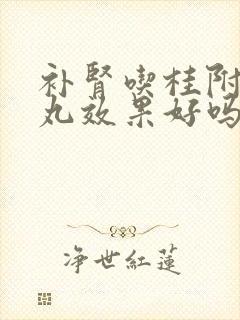 补肾喫桂附
丸效果好吗
净世紅蓮